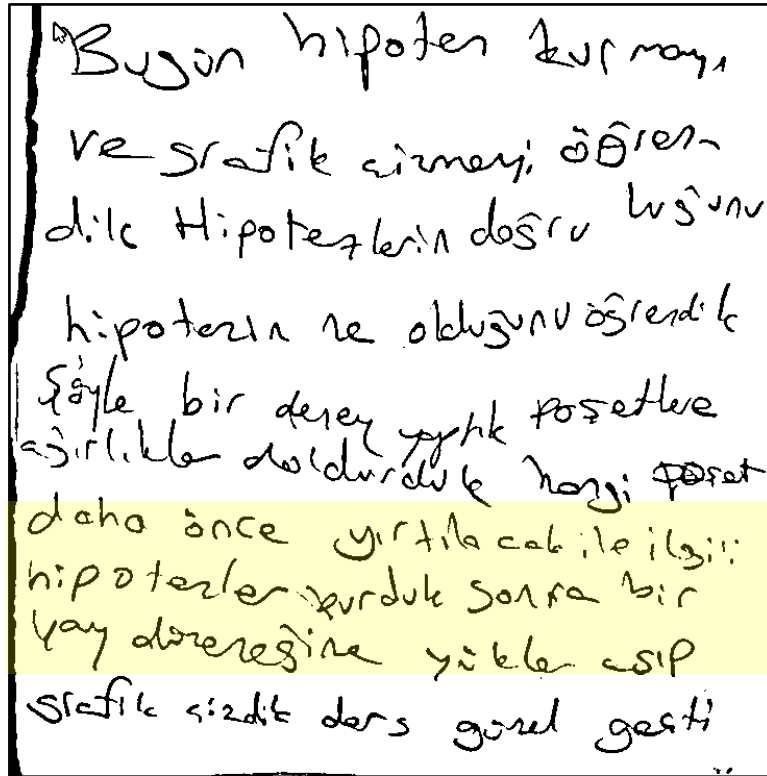 Bugün hipotez kurmayı
ve grafik çizmeyi öğren-
dik Hipotezlerin doğru luğunu
hipotezin ne olduğunu öğrendik
Şöyle bir deney yaptık poşetlere
ağırlıklar doldurduk hangi poşet
daha önce yırtılacak ile ilgili
hipotezler kurduk sonra bir
yay düzeneğine yükler asıp
grafik çizdik ders güzel geçti